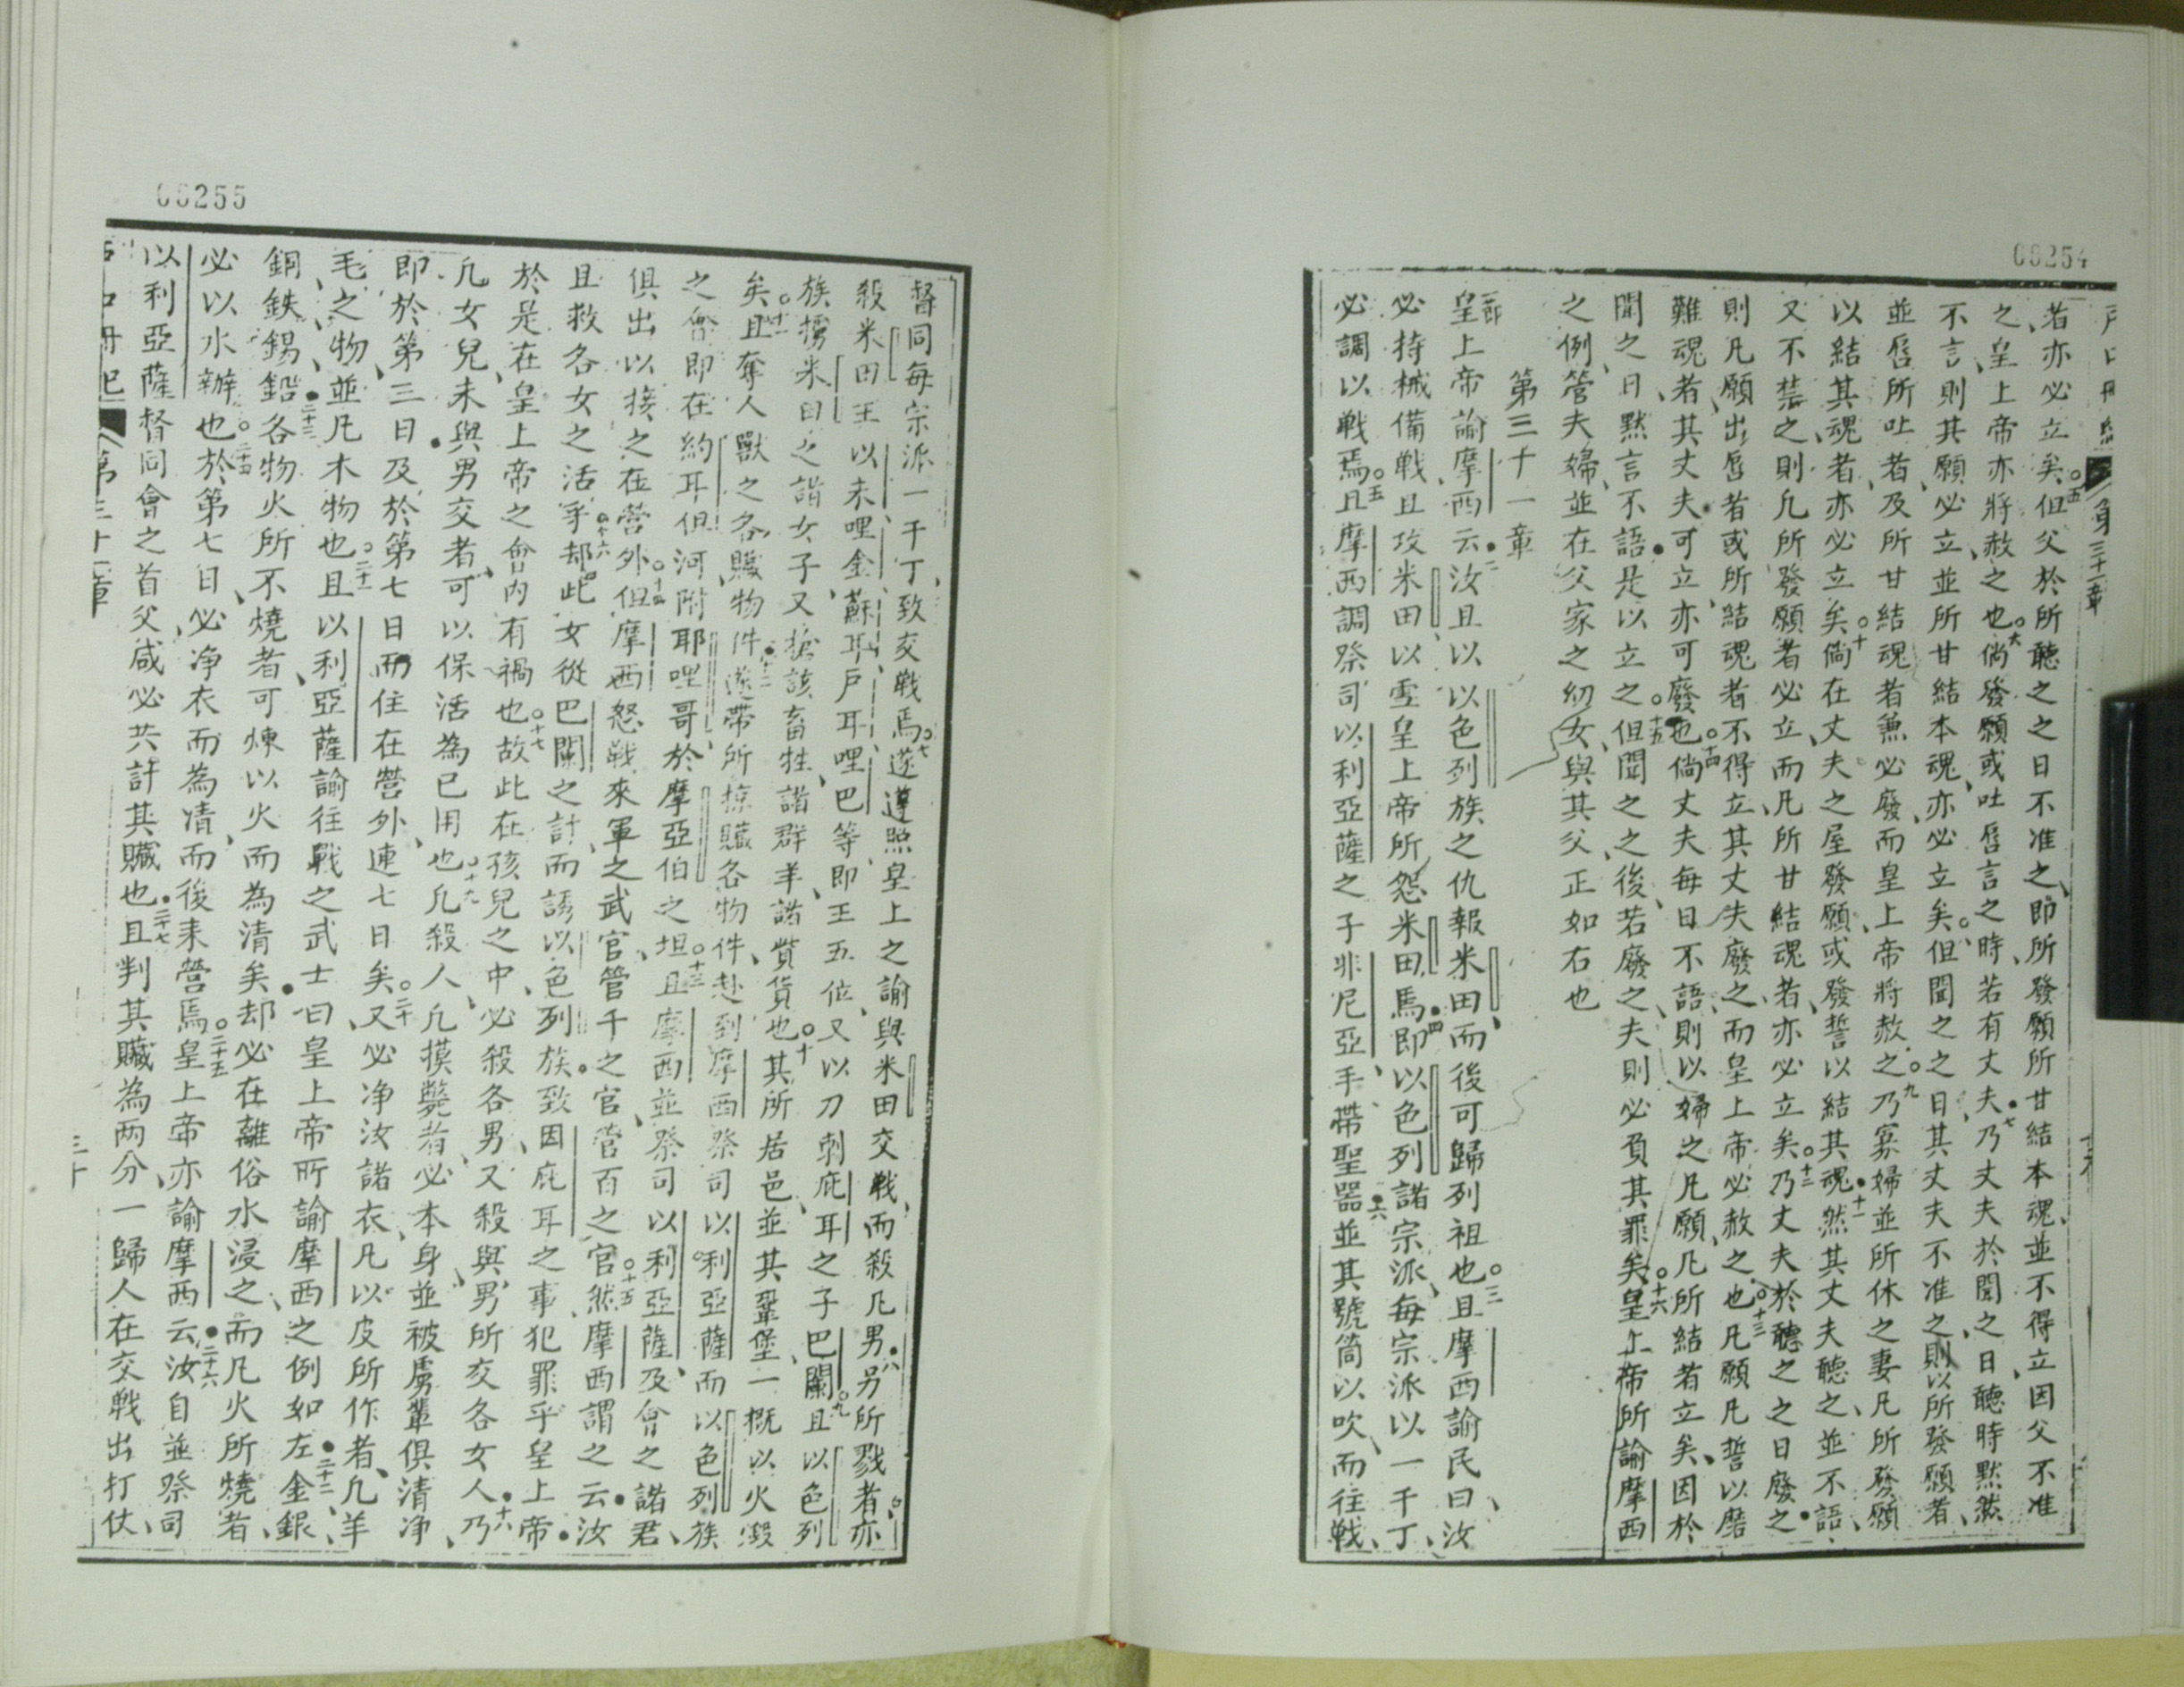 06254
戶口冊紀 第三十一章
者亦必立矣○五但父於所聽之之日不准之即所發願所甘結本魂並不得立因父不准
之皇上帝亦將赦之也○六倘發願或吐唇言之時若有丈夫七乃丈夫於聞之日聽時默然
不言則其願必立並所甘結本魂亦必立矣○八但聞之之日其丈夫不准之則以所發願者
並唇所吐者及所甘結魂者兼必廢而皇上帝將赦之○九乃寡婦並所休之妻凡所發願
以結其魂者亦必立矣○十倘在丈夫之屋發願或發誓以結其魂十一然其丈夫聽之並不語
又不禁之則凡所發願者必立而凡所甘結魂者亦必立矣○十二乃丈夫於聽之之日廢之
則凡願出唇者或所結魂者不得立其丈夫廢之而皇上帝必赦之也○十三凡願凡誓以磨
難魂者其丈夫可立亦可廢也○十四倘丈夫每日不語則以婦之凡願凡所結者立矣因於
聞之日默言不語是以立之○十五但聞之之後若廢之夫則必負其罪矣○十六皇上帝所諭摩西
之例管夫婦並在父家之幼女與其父正如右也
第三十一章
一節皇上帝諭摩西云二汝且以以色列族之仇報米田而後可歸列祖也○三且摩西諭民曰汝
必持械備戰且攻米田以雪皇上帝所怨米田焉四即以色列諸宗派每宗派以一千丁
必調以戰焉○五且摩西調祭司以利亞薩之子非尼亞手帶聖器並其號筒以吹而往戰六
06255
督同每宗派一千丁致交戰焉○七遂遵照皇上之諭與米田交戰而殺凡男八另所戮者亦
殺米田王以未哩金蘇耳戶耳哩巴等即王五位又以刀刺庇耳之子巴蘭○九且以色列
族擄米田之諸女子又搶該畜牲諸群羊諸貲貨也○十其所居邑並其鞏堡一概以火燬
矣○十一且奪人獸之各贓物件十二遂帶所掠贓各物件赴到摩西祭司以利亞薩而以色列族
之會即在約耳但河附耶哩哥於摩亞伯之坦○十三且摩西並祭司以利亞薩及會之諸君
俱出以接之在營外○十四但摩西怒戰來軍之武官管千之官管百之官○十五然摩西謂之云汝
且救各女之活乎○十六却此女從巴蘭之計而誘以色列族致因庇耳之事犯罪乎皇上帝
於是在皇上帝之會內有禍也○十七故此在孩兒之中必殺各男又殺與男所交各女人十八乃
凡女兒未與男交者可以保活為己用也○十九凡殺人凡摸斃者必本身並被虜輩俱清淨
即於第三日及於第七日而住在營外連七日矣○二十又必净汝諸衣凡以皮所作者凡羊
毛之物並凡木物也○二十一且以利亞薩諭往戰之武士曰皇上帝所諭摩西之例如左二十二金銀
銅鉄錫鉛二十三各物火所不燒者可煉以火而為清矣却必在離俗水浸之而凡火所燒者
必以水辦也○二十四於第七日必净衣而為清而後来營焉○二十五皇上帝亦諭摩西云二十六汝自並祭司
以利亞薩督同會之首父咸必共計其贓也二十七且判其贓為兩分一歸人在交戰出打仗
戶口冊紀 第三十一章 三十